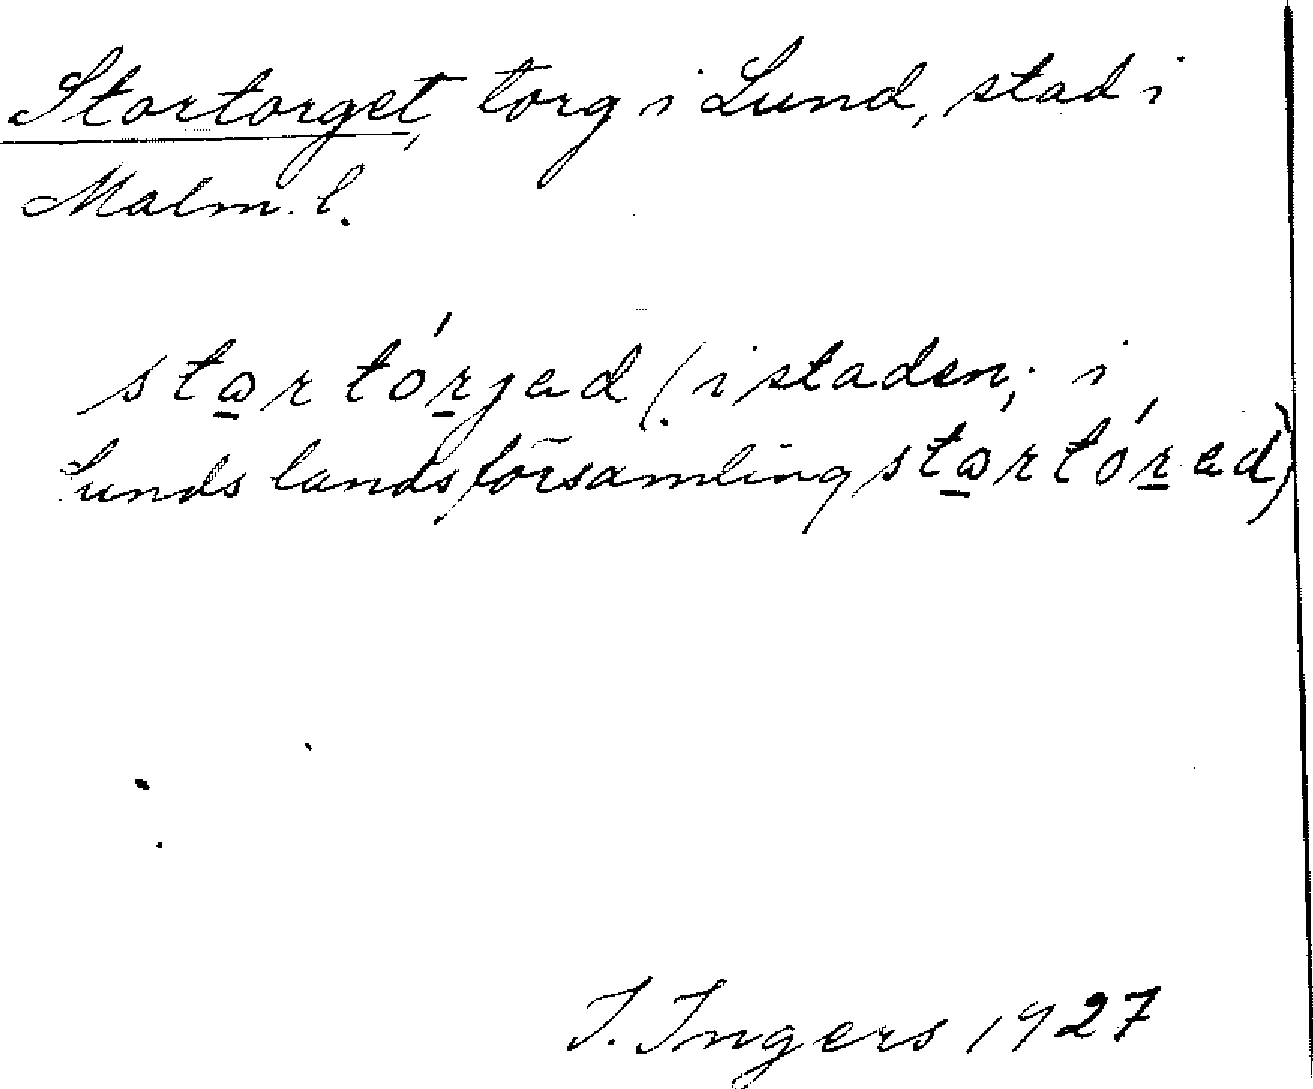 Stortorget, torg i Lund, stad i
Malm. l.
stɷ̱r tóṟjəd (i staden; i
Lunds landsförsamling stɷ̱r tóṟəd)
I. Ingers 1927